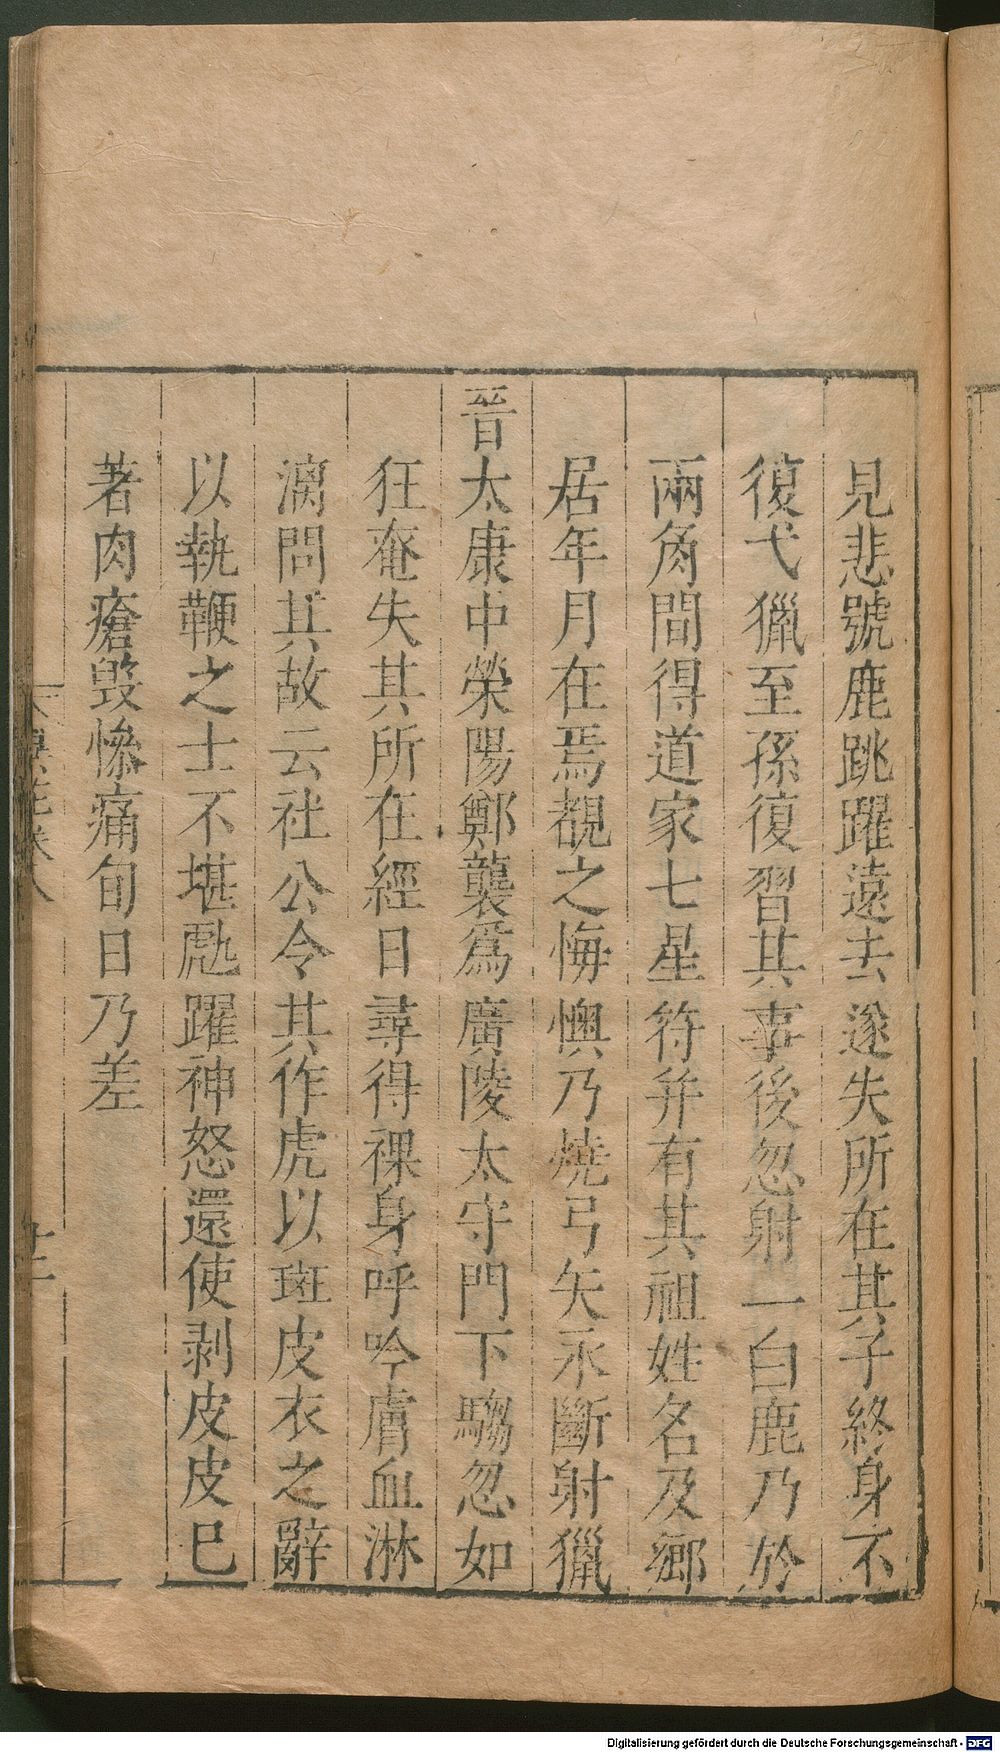 見悲號鹿跳躍遠去遂失所在其子終身不
復弋獵至孫復習其事後忽射一白鹿乃於
兩角間得道家七星符并有其祖姓名及鄉
居年月在焉覩之悔懊乃燒弓矢永斷射獵
晉太康中滎陽鄭襲爲廣陵太守門下騶忽如
狂奄失其所在經日尋得裸身呼吟膚血淋
漓問其故云社公令其作虎以斑皮衣之辭
以執鞭之士不堪虓躍神怒還使剥皮皮已
著肉瘡毁慘痛旬日乃差
異苑卷八
十二
Digitalisierung gefördert durch die Deutsche Forschungsgemeinschaft - DFG